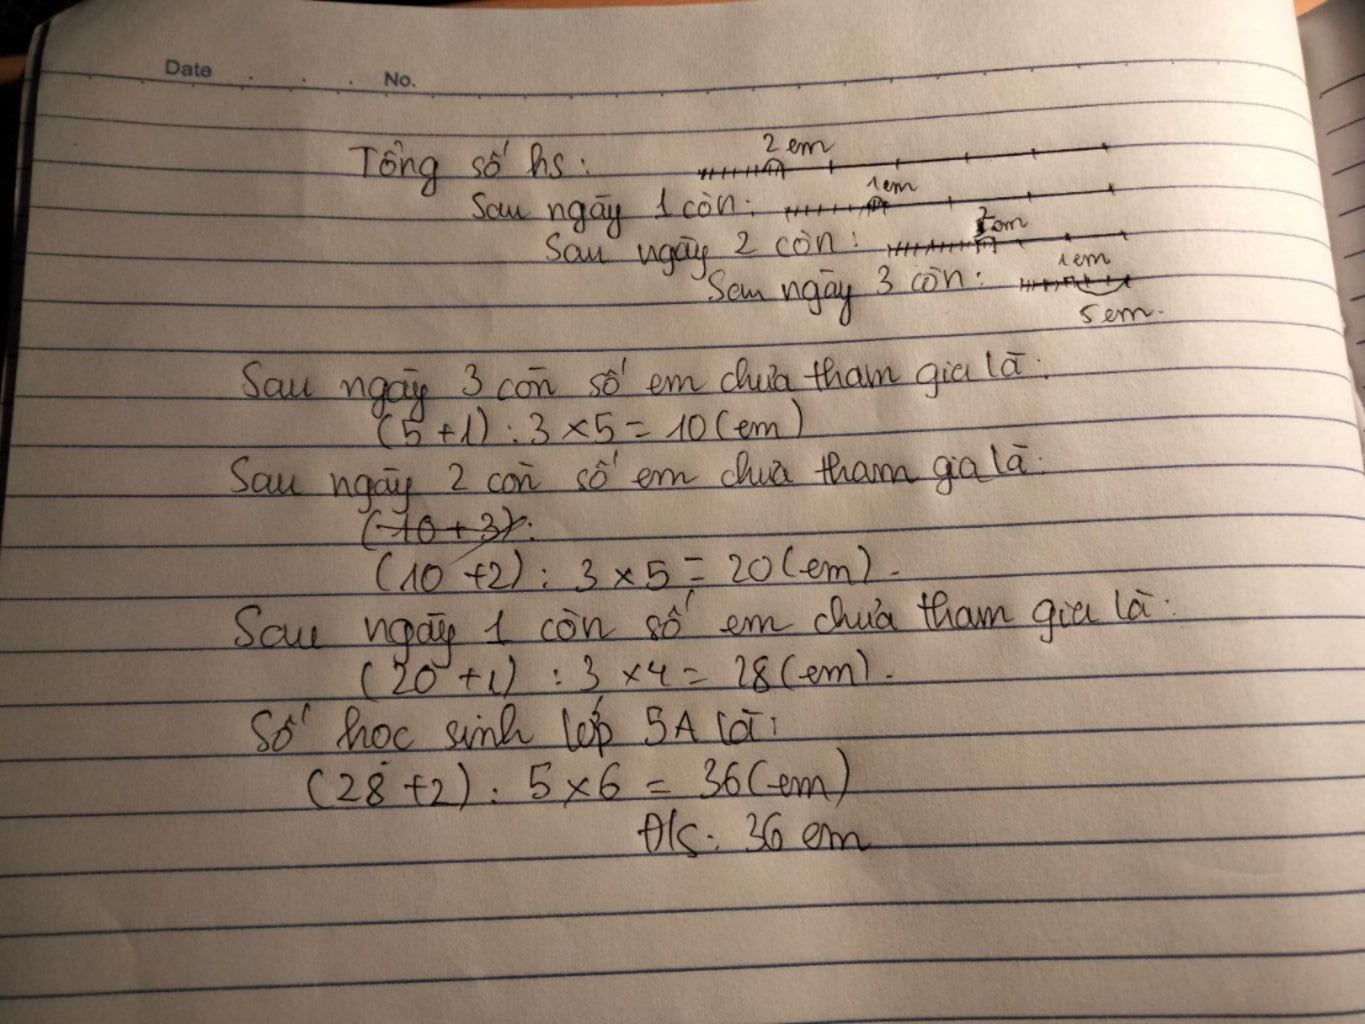 Date No.
Tổng số hs: 2 em
Sau ngày 1 còn: 1em
Sau ngày 2 còn: em
Sau ngày 3 còn: 1em
5 em.
Sau ngày 3 còn số em chưa tham gia là:
(5+1) : 3 × 5 = 10 (em)
Sau ngày 2 còn số em chưa tham gia là:
(10 + 3):
(10 +2) : 3 × 5 = 20 (em).
Sau ngày 1 còn số em chưa tham gia là:
(20 +1) : 3 ×4 = 28 (em).
Số học sinh lớp 5A là:
(28 +2) : 5 × 6 = 36 (em)
Đ/S: 36 em